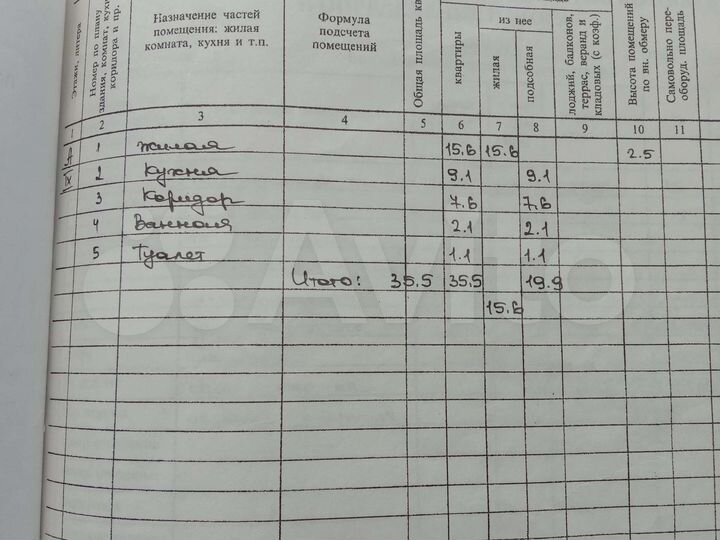 Этажи, литера
Номер по плану здания, комнат, кухни, коридора и пр.
Назначение частей помещения: жилая комната, кухня и т.п.
Формула подсчета помещений
Общая площадь
квартиры
из нее
жилая
подсобная
лоджий, балконов, террас, веранд и кладовых (с коэф.)
Высота помещений по вн. обмеру
Самовольно пере- оборуд. площадь
2 3 4 5 6 7 8 9 10 11
1 жилая 15.6 15.6 2.5
2 Кухня 9.1 9.1
3 Коридор 7.6 7.6
4 Ванная 2.1 2.1
5 Туалет 1.1 1.1
Итого: 35.5 35.5 19.9
15.6
Avito